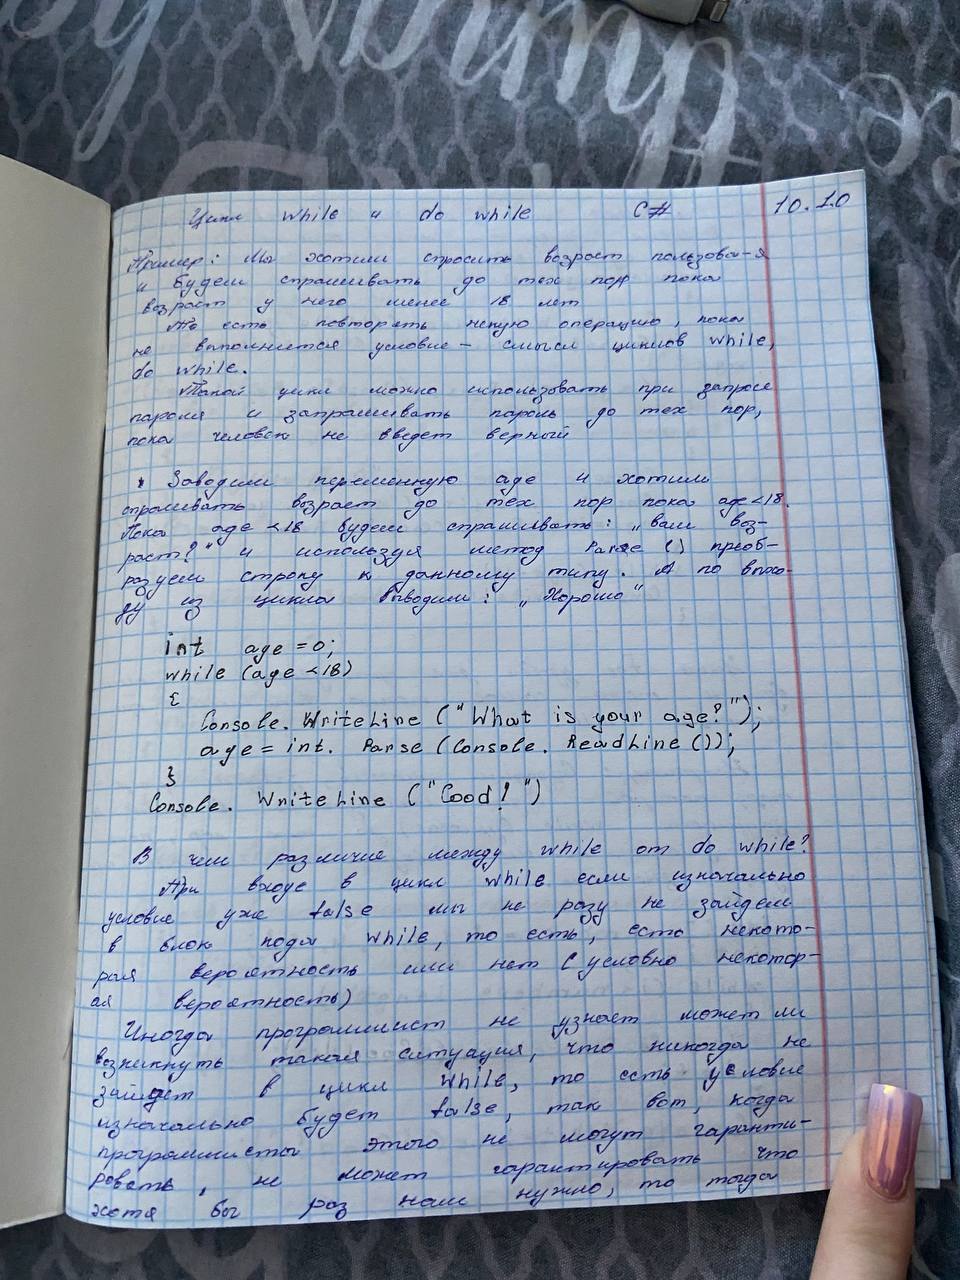 Цикл while и do while C# 10.10
Пример: Мы хотим спросить возраст пользова-я
и будем спрашивать до тех пор пока
возраст у него менее 18 лет
То есть повторять некую операцию, пока
не выполнится условие - смысл циклов while,
do while.
Такой цикл можно использовать при запросе
пароля и запрашивать пароль до тех пор,
пока человек не введет верный
Заводим переменную age и хотим
спрашивать возраст до тех пор пока age<18.
Пока age <18 будем спрашивать: „ваш воз-
раст?" и используя метод Parse () преоб-
разуем строку к данному типу. А по выхо-
ду из цикла выводим: „Хорошо"
int age =0;
while (age <18)
{
Console. WriteLine ("What is your age?");
age = int. Parse (Console. ReadLine ());
}
Console. WriteLine ("Good!")
В чем различие между while от do while?
При входе в цикл while если изначально
условие уже false мы не разу не зайдем
в блок кода while, то есть, есть некото-
рая вероятность или нет (условно некотор-
ая вероятность)
Иногда программист не узнает может ли
возникнуть такая ситуация, что никогда не
зайдет в цикл while, то есть условие
изначально будет false, так вот, когда
программисты этого не могут гаранти-
ровать, не может гарантировать что
хотя бы раз нам нужно, то тогда